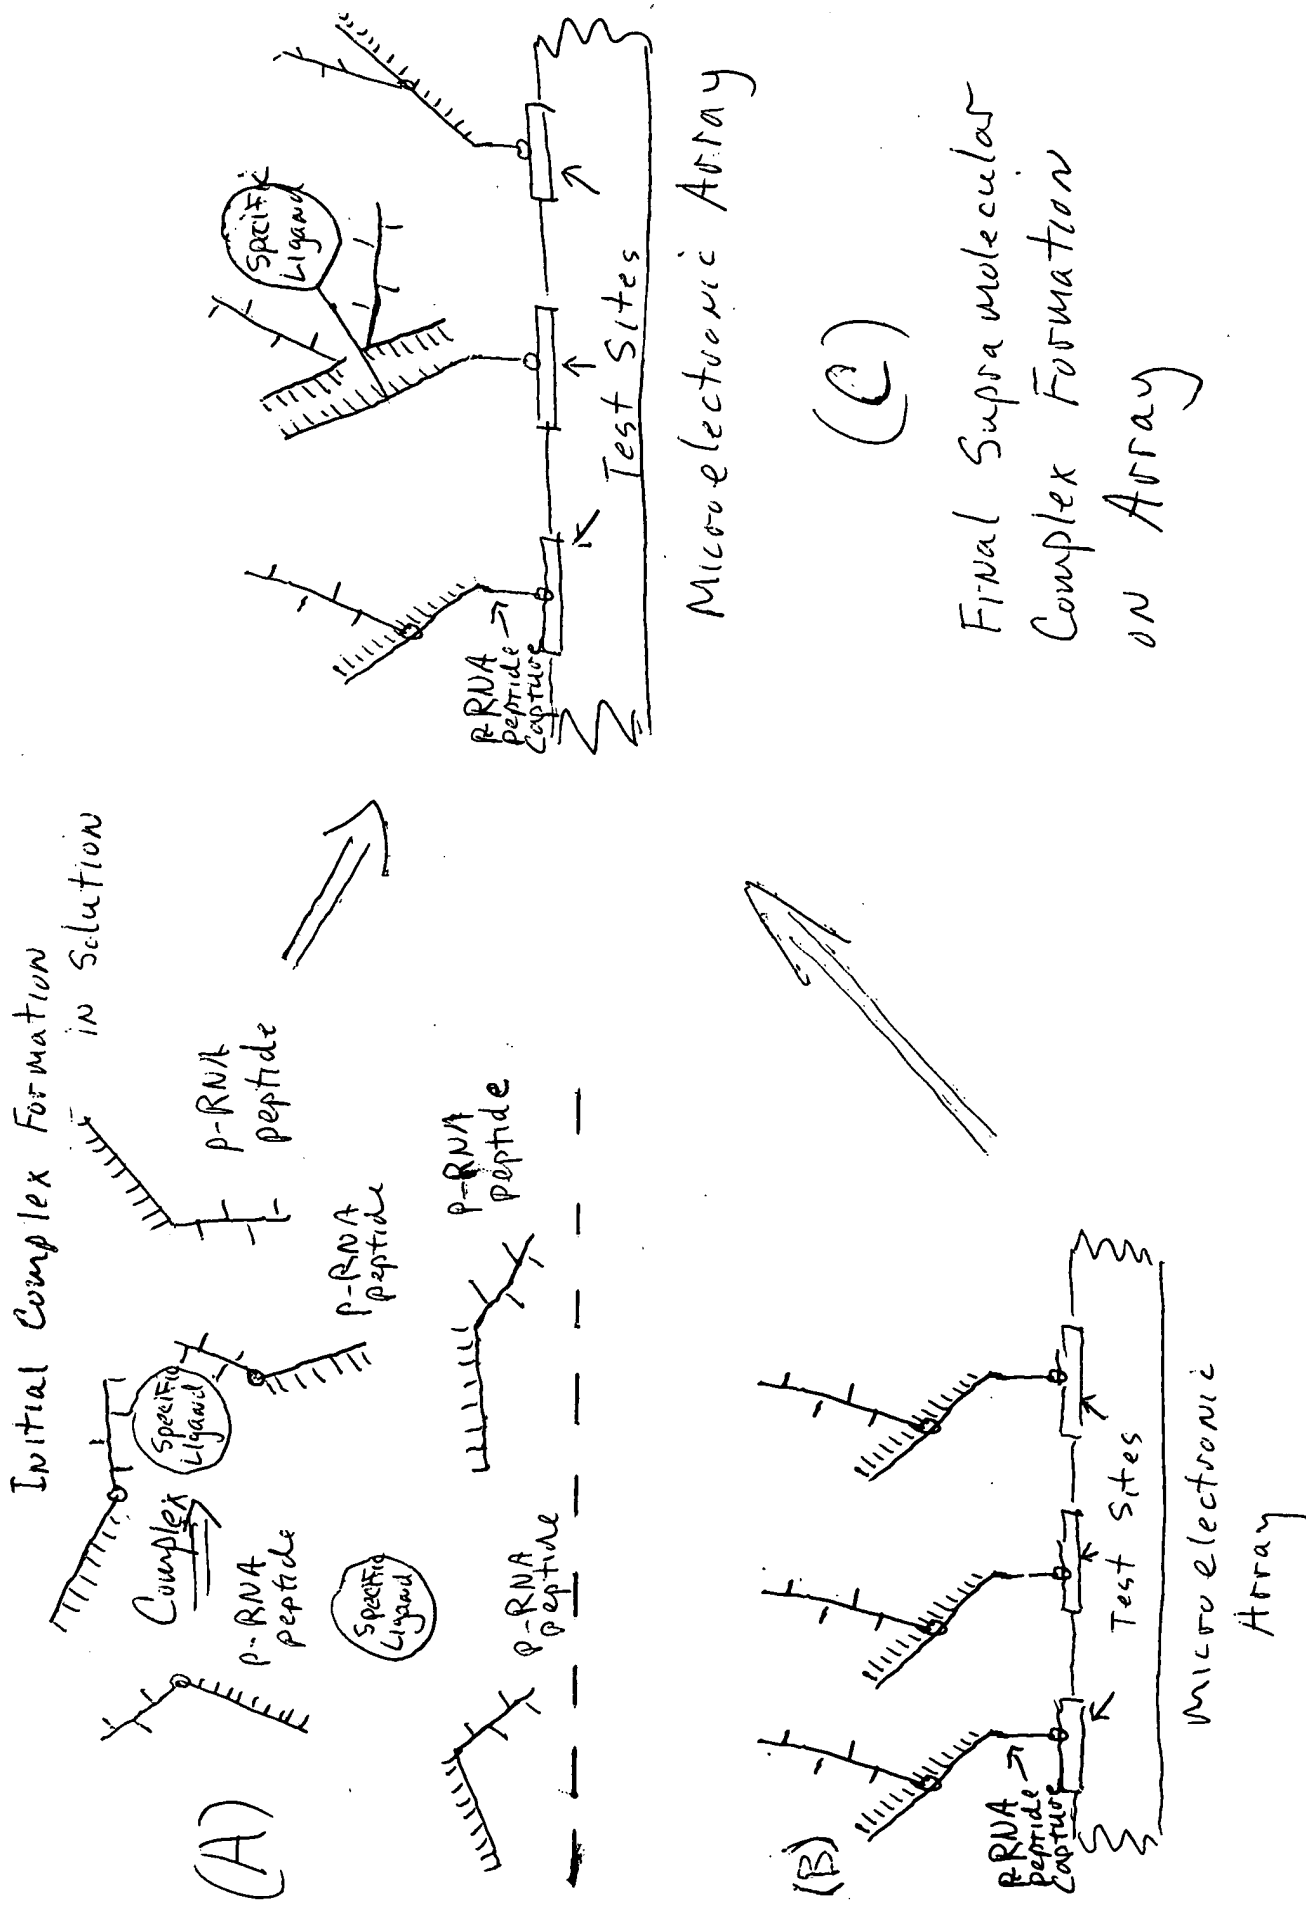 Initial Complex Formation
in Solution
(A)
Complex
p-RNA
peptide
Specific
Ligand
Specific
Ligand
p-RNA
peptide
p-RNA
peptide
p-RNA
peptide
p-RNA
peptide
(B)
p-RNA
peptide
Capture
Test Sites
Microelectronic
Array
Specific
Ligand
p-RNA
peptide
Capture
Test Sites
Microelectronic Array
(C)
Final Supramolecular
Complex Formation
on Array